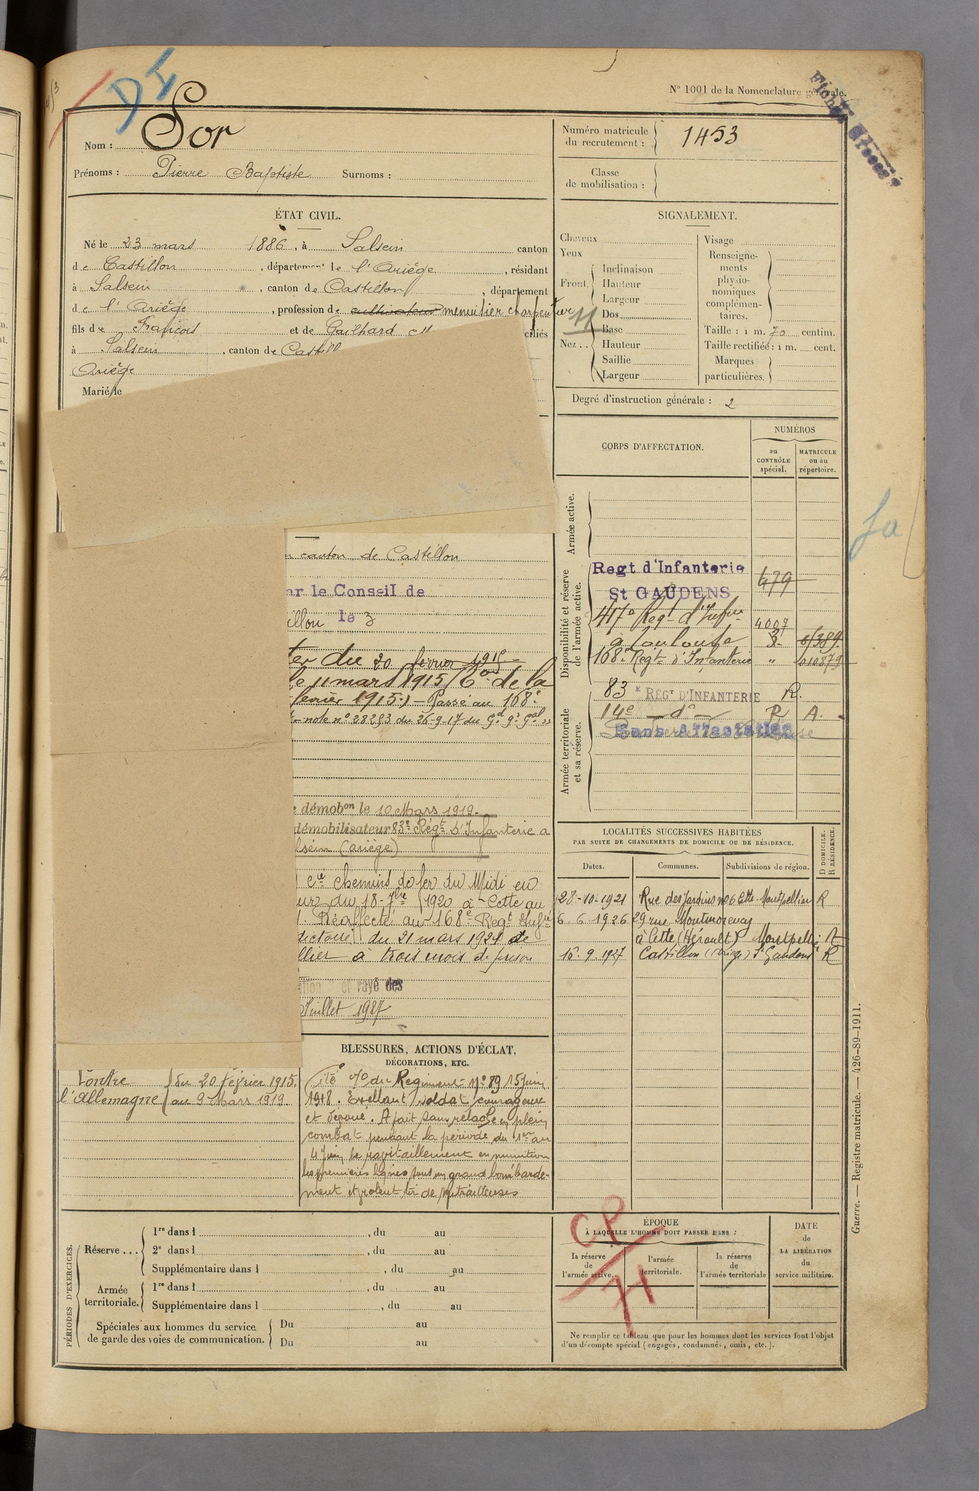 DI
N° 1001 de la Nomenclature générale.
Nom : Sor
Prénoms : Pierre Baptiste Surnoms :
Numéro matricule du recrutement : 1453
Classe de mobilisation :
ÉTAT CIVIL.
Né le 23 mars 1886, à Salsein canton
de Castillon, département de l'Ariège, résidant
à Salsein, canton de Castillon, département
de l'Ariège, profession de cultivateur menuisier charpentier
fils de François et de Gailhard
à Salsein, canton de Castill
Ariège
Marié le
SIGNALEMENT.
Cheveux
Yeux
Front.
Inclinaison
Hauteur
Largeur
Nez..
Dos
Base
Hauteur
Saillie
Largeur
Visage
Renseignements physionomiques complémentaires.
Taille : 1 m. 70 centim.
Taille rectifiée : 1 m. cent.
Marques particulières.
Degré d'instruction générale : 2
CORPS D'AFFECTATION.
NUMÉROS
au CONTRÔLE spécial.
MATRICULE ou au répertoire.
Armée active.
Disponibilité et réserve de l'armée active.
Regt d'Infanterie
St GAUDENS 479
417e Regt d'Infrie 4007
à Toulouse
168e Regt d'Infanterie " 010879
Armée territoriale et sa réserve.
83e REGt D'INFANTERIE R.
14e — do — R A.
Sans Affectation
canton de Castillon
ar le Conseil de
illon le 3
ter du 20 février 1915
le 11 mars 1915 de la
février 1915.) — Passé au 168e
note n° 28283 du 26-9-17 du
démobon le 10 Mars 1919.
démobilisateur 83e Régt d'Infanterie à
lsein (Ariège)
cie chemins de fer du Midi en
du 18-7bre 1920 à Cette au
Réaffecté au 168e Regt Infie
du 21 mars 1924 de
llier à trois mois de prison
et rayé des
Juillet 1927
LOCALITÉS SUCCESSIVES HABITÉES
PAR SUITE DE CHANGEMENTS DE DOMICILE OU DE RÉSIDENCE.
D DOMICILE. R RÉSIDENCE.
Dates. Communes. Subdivisions de région.
28-10-1921 Rue des Jardins n°6 Cette Montpellier R
6-6-1926 29 rue Montmorency
à Cette (Hérault) Montpellier R
16-9-1927 Castillon (Ariège) St Gaudens R
Contre l'Allemagne
du 20 Février 1915.
au 9 Mars 1919.
BLESSURES, ACTIONS D'ÉCLAT,
DÉCORATIONS, ETC.
Cité % du Régiment n° 89 15 juin
1918. Excellent soldat courageux
et dévoué. A fait sans relache en plein
combat pendant la période du 1er au
4 Juin, le ravitaillement en munition
les premières lignes sous un grand bombarde-
ment et violent tir de mitrailleuses
PÉRIODES D'EXERCICES.
Réserve...
1re dans l , du au
2e dans l , du au
Supplémentaire dans l , du au
Armée territoriale.
1re dans l , du au
Supplémentaire dans l , du au
Spéciales aux hommes du service
de garde des voies de communication.
Du au
Du au
ÉPOQUE
À LAQUELLE L'HOMME DOIT PASSER DANS :
la réserve de l'armée active.
l'armée territoriale.
la réserve de l'armée territoriale
DATE de LA LIBÉRATION du service militaire.
CP
71
Ne remplir ce tableau que pour les hommes dont les services font l'objet
d'un décompte spécial (engagés, condamnés, omis, etc.).
Guerre. — Registre matricule. — 426-89-1911.